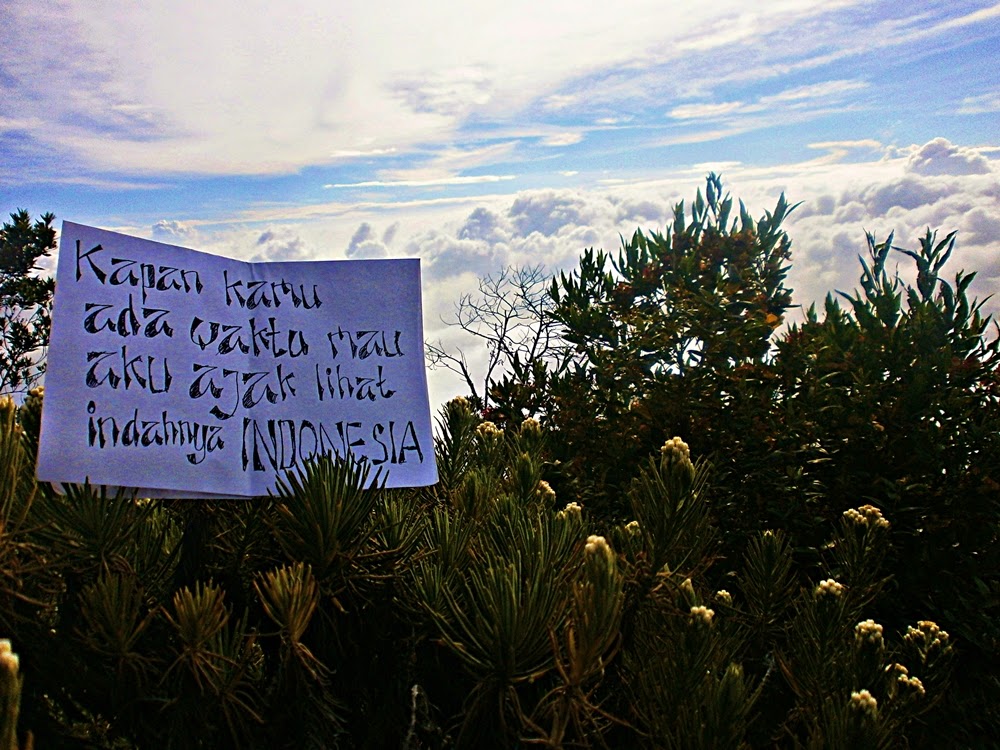 Kapan kamu
ada waktu mau
aku ajak lihat
indahnya INDONESIA